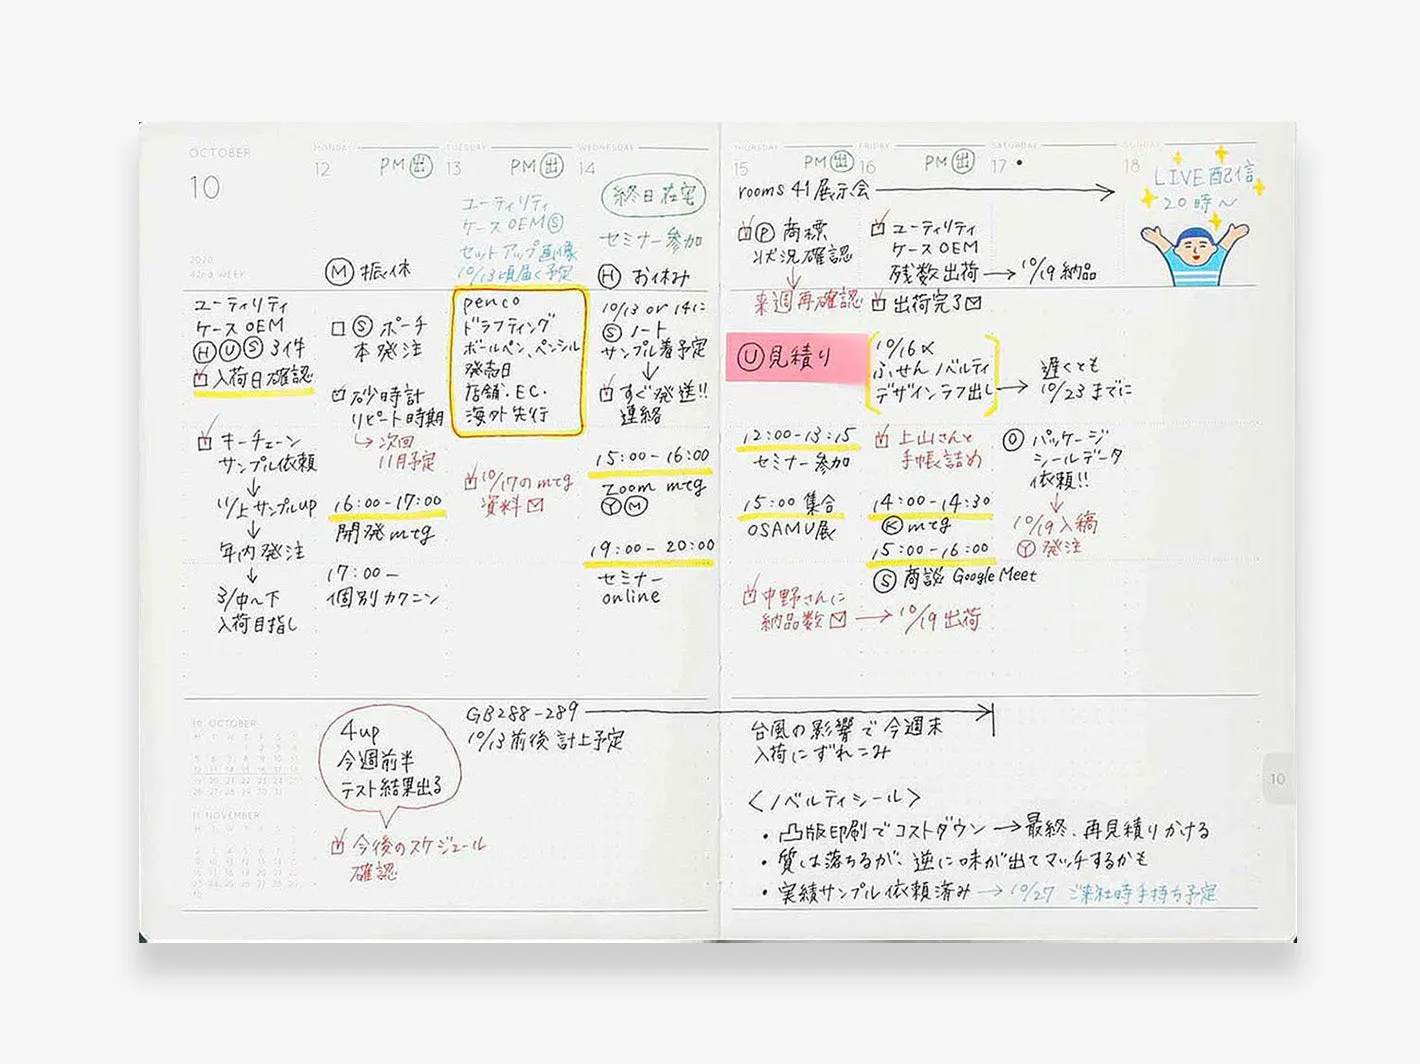 OCTOBER
10
2020
42nd WEEK
ユーティリティ
ケース OEM
ⒽⓊⓈ 3件
入荷日確認
キーチェーン
サンプル依頼
↓
11/上 サンプルup
↓
年内発注
↓
3/中〜下
入荷目指し
MONDAY
12
PM 出
Ⓜ 振休
Ⓢ ポーチ
本発注
砂時計
リピート時期
→次回
11月予定
16:00-17:00
開発mtg
17:00-
個別カクニン
TUESDAY
13
PM 出
ユーティリティ
ケースOEMⓈ
セットアップ画像
10/13頃届く予定
penco
ドラフティング
ボールペン、ペンシル
発売日
店舗・EC・
海外先行
10/17のmtg
資料
WEDNESDAY
14
終日在宅
セミナー参加
Ⓗ お休み
10/13 or 14に
Ⓢ ノート
サンプル着予定
↓
すぐ発送!!
連絡
15:00-16:00
Zoom mtg
ⓎⓂ
19:00-20:00
セミナー
online
THURSDAY
15
PM 出
rooms 41展示会
Ⓟ 商標
状況確認
↓
来週再確認
Ⓤ見積り
12:00-13:15
セミナー参加
15:00 集合
OSAMU展
中野さんに
納品数 → 10/19出荷
FRIDAY
16
PM 出
ユーティリティ
ケースOEM
残数出荷 → 10/19納品
出荷完了
10/16〆
ふせんノベルティ
デザインラフ出し →
上山さんと
手帳詰め
14:00-14:30
Ⓚmtg
15:00-16:00
Ⓢ 商談 Google Meet
SATURDAY
17
遅くとも
10/23までに
Ⓞ パッケージ
シールデータ
依頼!!
↓
10/19入稿
Ⓨ発注
SUNDAY
18
LIVE配信
20時〜
10 OCTOBER
11 NOVEMBER
4up
今週前半
テスト結果出る
今後のスケジュール
確認
GB288-289
10/13前後計上予定
台風の影響で今週末
入荷にずれこみ
<ノベルティシール>
・凸版印刷でコストダウン → 最終、再見積りかける
・質は落ちるが、逆に味が出てマッチするかも
・実績サンプル依頼済み → 10/27 ご来社時手持ち予定
10